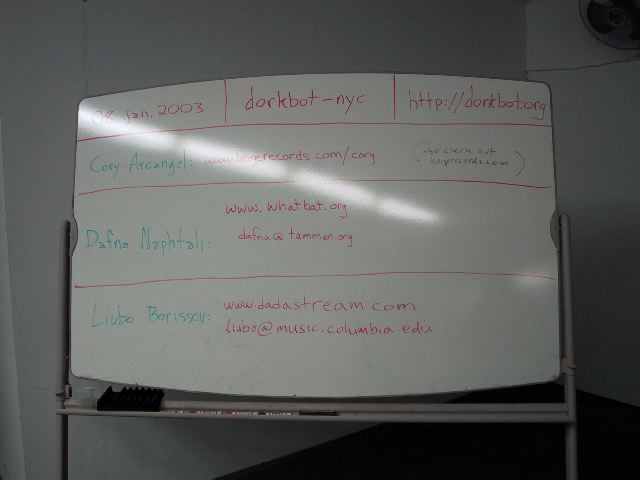 08 Jan. 2003 dorkbot-nyc http://dorkbot.org
Cory Arcangel: www.beigerecords.com/cory (also check out
beigerecords.com)
www.whatbat.org
Dafna Naphtali: dafna@tammen.org
www.dadastream.com
Liubo Borissov: liubo@music.columbia.edu